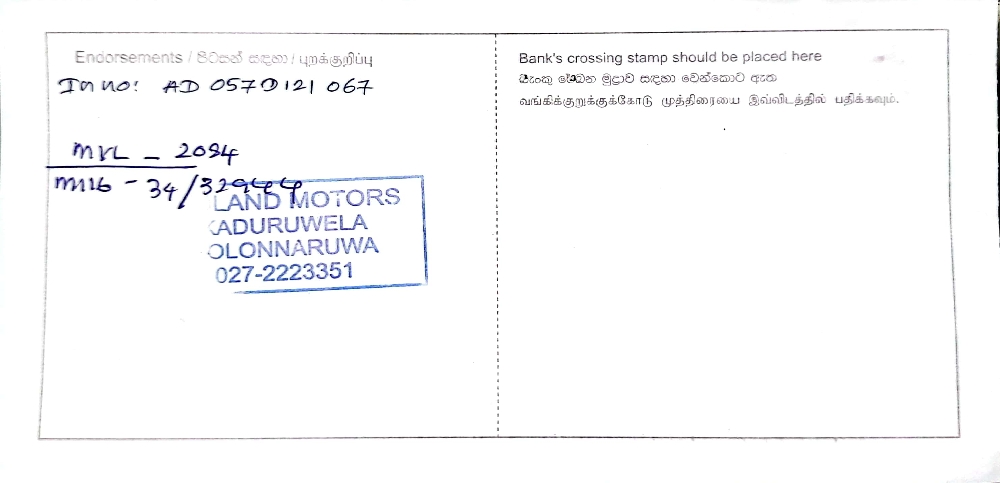 Endorsements / පිටසන් සඳහා / புறக்குறிப்பு
In no: AD 057D121 067
MVL - 2094
- 34/32944
LAND MOTORS
KADURUWELA
POLONNARUWA
027-2223351
Bank's crossing stamp should be placed here
බැංකු රේඛන මුද්‍රාව සඳහා වෙන්කොට ඇත
வங்கிக்குறுக்குக்கோடு முத்திரையை இவ்விடத்தில் பதிக்கவும்.